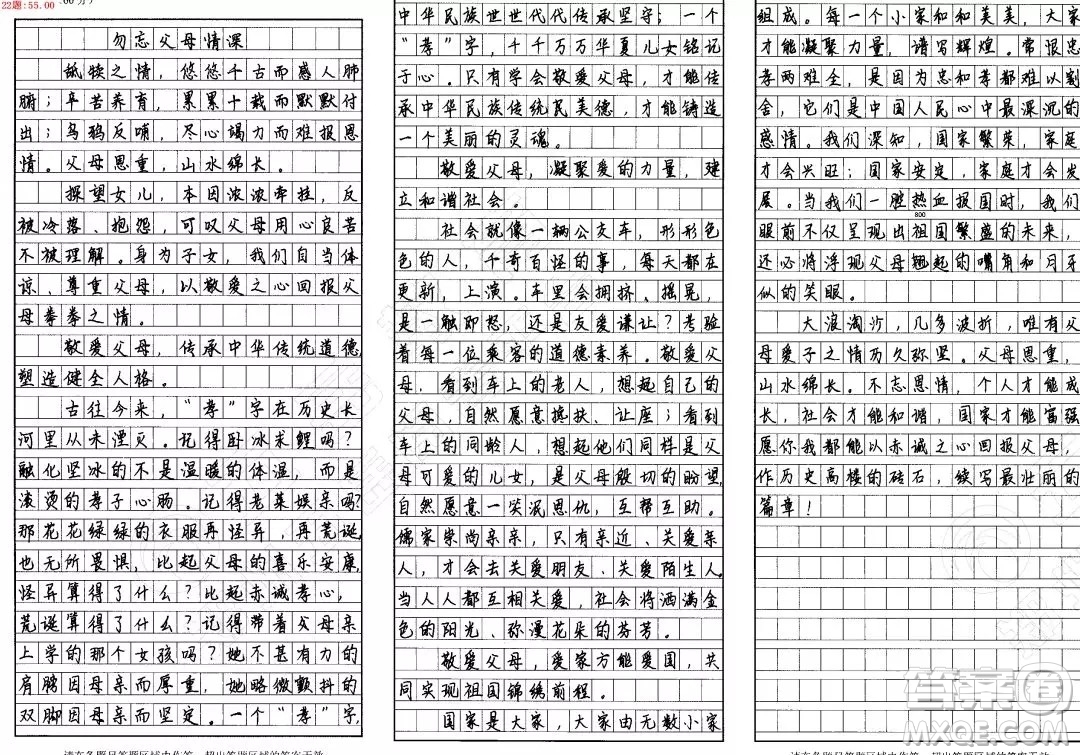 22题:55.00
勿忘父母情深
舐犊之情，悠悠千古而感人肺
腑；辛苦养育，累累十载而默默付
出；乌鸦反哺，尽心竭力而难报恩
情。父母恩重，山水绵长。
探望女儿，本因浓浓牵挂，反
被冷落、抱怨，可叹父母用心良苦
不被理解。身为子女，我们自当体
谅、尊重父母，以敬爱之心回报父
母拳拳之情。
敬爱父母，传承中华传统道德，
塑造健全人格。
古往今来，“孝”字在历史长
河里从未湮灭。记得卧冰求鲤吗？
融化坚冰的不是温暖的体温，而是
滚烫的孝子心肠。记得老莱娱亲吗？
那花花绿绿的衣服再怪异，再荒诞，
也无所畏惧，比起父母的喜乐安康，
怪异算得了什么？比起赤诚孝心，
荒诞算得了什么？记得带着父母亲
上学的那个女孩吗？她不甚有力的
肩膀因母亲而厚重，她略微颤抖的
双脚因母亲而坚定。一个“孝”字，
中华民族世世代代传承坚守；一个
“孝”字，千千万万华夏儿女铭记
于心。只有学会敬爱父母，才能传
承中华民族传统民美德，才能铸造
一个美丽的灵魂。
敬爱父母，凝聚爱的力量，建
立和谐社会。
社会就像一辆公交车，形形色
色的人，千奇百怪的事，每天都在
更新，上演。车里会拥挤、摇晃，
是一触即怒，还是友爱谦让？考验
着每一位乘客的道德素养。敬爱父
母，看到车上的老人，想起自己的
父母，自然愿意搀扶、让座；看到
车上的同龄人，想起他们同样是父
母可爱的儿女，是父母殷切的盼望，
自然愿意一笑泯恩仇，互帮互助。
儒家崇尚亲亲，只有亲近、关爱亲
人，才会去关爱朋友、关爱陌生人。
当人人都互相关爱，社会将洒满金
色的阳光、弥漫花朵的芬芳。
敬爱父母，爱家方能爱国，共
同实现祖国锦绣前程。
国家是大家，大家由无数小家
组成。每一个小家和和美美，大家
才能凝聚力量，谱写辉煌。常恨忠
孝两难全，是因为忠和孝都难以割
舍，它们是中国人民心中最深沉的
感情。我们深知，国家繁荣，家庭
才会兴旺；国家安定，家庭才会发
展。当我们一腔热血报国时，我们
800
眼前不仅呈现出祖国繁盛的未来，
还必将浮现父母翘起的嘴角和月牙
似的笑眼。
大浪淘沙，几多波折，唯有父
母爱子之情历久弥坚。父母恩重，
山水绵长。不忘恩情，个人才能成
长，社会才能和谐，国家才能富强
愿你我都能以赤诚之心回报父母，
作历史高楼的砖石，续写最壮丽的
篇章！
答案圈
MXQE.COM